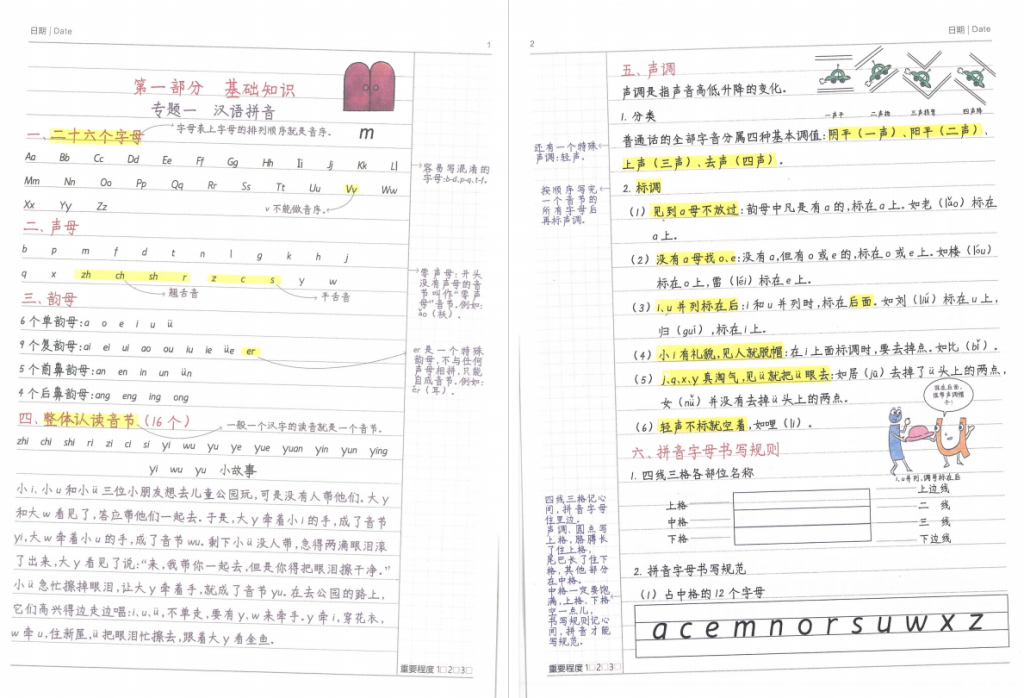 日期 | Date
1
第一部分 基础知识
专题一 汉语拼音
一、二十六个字母
字母表上字母的排列顺序就是音序。
m
Aa Bb Cc Dd Ee Ff Gg Hh Ii Jj Kk Ll
Mm Nn Oo Pp Qq Rr Ss Tt Uu Vv Ww
Xx Yy Zz
v不能做音序。
容易写混淆的
字母:b-d,p-q,t-f。
二、声母
b p m f d t n l g k h j
q x zh ch sh r z c s y w
翘舌音
平舌音
零声母:开头
没有声母的音
节叫作“零声
母”音节。例如:
ǎo(袄)。
三、韵母
6个单韵母:a o e i u ü
9个复韵母:ai ei ui ao ou iu ie üe er
5个前鼻韵母:an en in un ün
4个后鼻韵母:ang eng ing ong
er是一个特殊
韵母,不与任何
声母相拼,只能
自成音节。例如:
ěr(耳)。
四、整体认读音节(16个)
一般一个汉字的读音就是一个音节。
zhi chi shi ri zi ci si yi wu yu ye yue yuan yin yun ying
yi wu yu 小故事
小i、小u和小ü三位小朋友想去儿童公园玩,可是没有人带他们。大y
和大w看见了,答应带他们一起去。于是,大y牵着小i的手,成了音节
yi,大w牵着小u的手,成了音节wu。剩下小ü没人带,急得两滴眼泪滚
了出来,大y看见了说:“来,我带你一起去,但是你得把眼泪擦干净。”
小ü急忙擦掉眼泪,让大y牵着手,就成了音节yu。在去公园的路上,
它们高兴得边走边唱:i、u、ü,不单走,要有y、w来牵手。y牵i,穿花衣,
w牵u,住新屋,ü把眼泪忙擦去,跟着大y看金鱼。
重要程度 1□2□3□
2
日期 | Date
五、声调
声调是指声音高低升降的变化。
一声平
二声扬
三声拐弯
四声降
1.分类
普通话的全部字音分属四种基本调值:阴平(一声)、阳平(二声)、
上声(三声)、去声(四声)。
还有一个特殊
声调:轻声。
2.标调
按顺序写完
一个音节的
所有字母后
再标声调。
(1)见到a母不放过:韵母中凡是有a的,标在a上。如老(lǎo)标在
a上。
(2)没有a母找o、e:没有a,但有o或e的,标在o或e上。如楼(lóu)
标在o上,雷(léi)标在e上。
(3)i、u并列标在后:i和u并列时,标在后面。如刘(liú)标在u上,
归(guī),标在i上。
(4)小i有礼貌,见人就脱帽:在i上面标调时,要去掉点。如比(bǐ)。
(5)j、q、x、y真淘气,见ü就把ü眼去:如居(jū)去掉了ü头上的两点,
女(nǚ)并没有去掉ü头上的两点。
(6)轻声不标就空着,如哩(li)。
我在后面,
i、u并列,调号标在后
六、拼音字母书写规则
1.四线三格各部位名称
上格
中格
下格
上边线
二 线
三 线
下边线
四线三格记心
间,拼音字母
住里边。
声调、圆点写
上格,胳膊长
了住上格,
尾巴长了住下
格,其他部分
在中格。
中格一定要饱
满,上格、下格
空一点儿,
书写规则记心
间,拼音才能
写规范。
2.拼音字母书写规范
(1)占中格的12个字母
a c e m n o r s u w x z
重要程度 1□2□3□